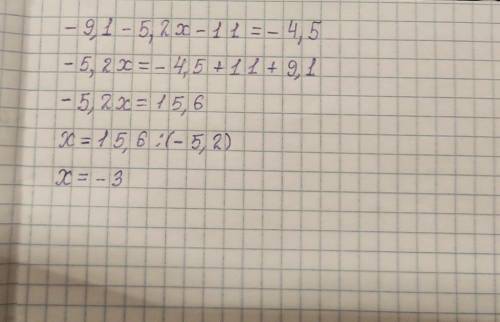 -9,1-5,2x-11=-4,5
-5,2x=-4,5+11+9,1
-5,2x=15,6
x=15,6:(-5,2)
x=-3